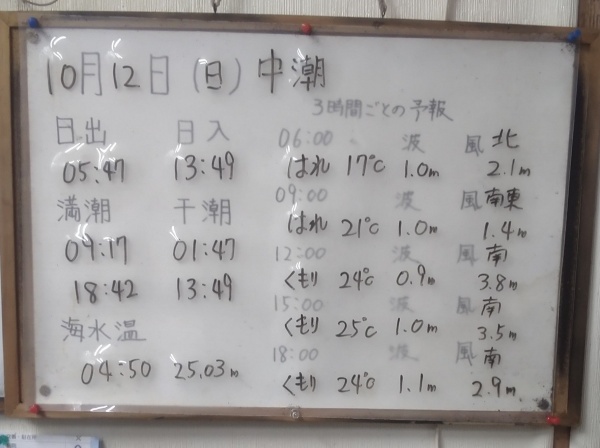 10月12日(日) 中潮
日出 日入
05:47 13:49
満潮 干潮
09:17 01:47
18:42 13:49
海水温
04:50 25.03m
3時間ごとの予報
06:00 波 風 北
はれ 17℃ 1.0m 2.1m
09:00 波 風 南東
はれ 21℃ 1.0m 1.4m
12:00 波 風 南
くもり 24℃ 0.9m 3.8m
15:00 波 風 南
くもり 25℃ 1.0m 3.5m
18:00 波 風 南
くもり 24℃ 1.1m 2.9m